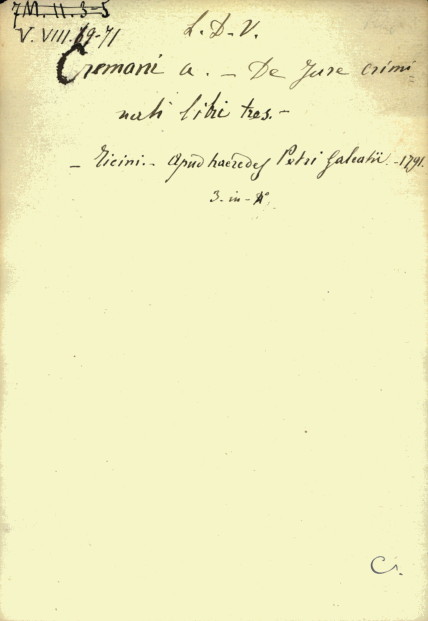 7M. 11. 3-5
V. VIII. 69-71
L. D. V.
Cremani a. - De Jure crimi=
nali libri tres. -
- Ticini. - Apud haeredes Petri Galeatii. - 1791.
3. in - 4°
Cr.